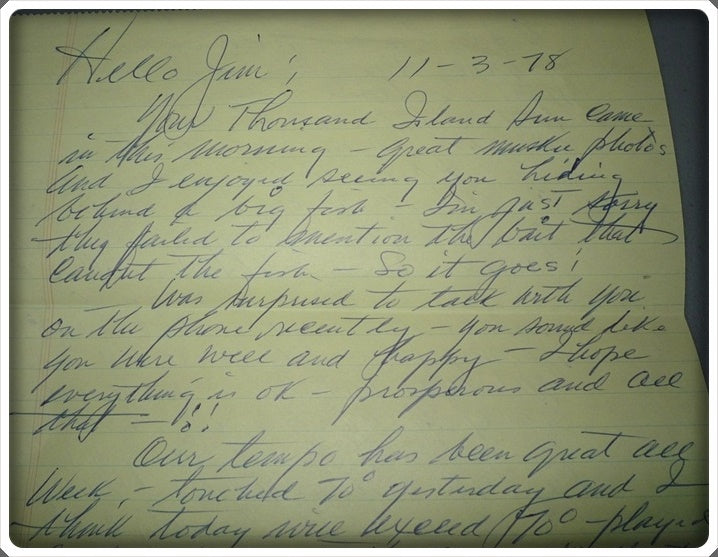 Hello Jim! 11-3-78
Your Thousand Island Sun came
in this morning - great muskie photos
and I enjoyed seeing you hiding
behind a big fish - I'm just sorry
they failed to mention the bait that
caught the fish - So it goes!
Was surprised to talk with you
on the phone recently - you sound like
you were well and happy - I hope
everything is ok - prosperous and all
that - !!
Our temps has been great all
Week, - touched 70° yesterday and I
think today will exceed 70° - played